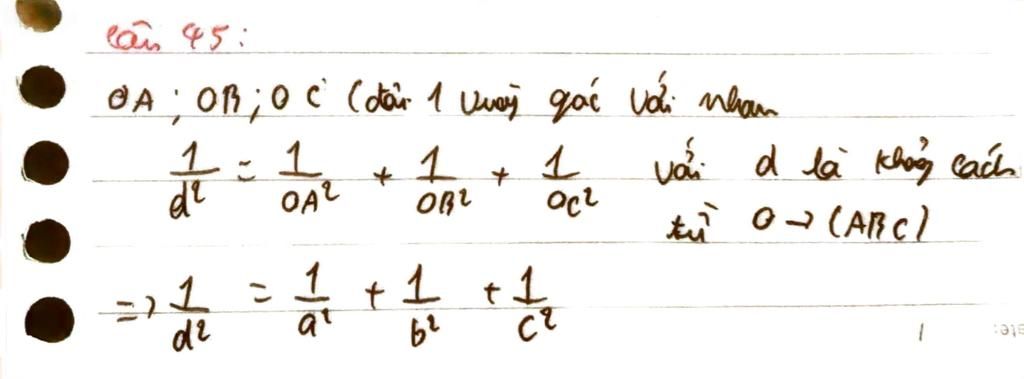 Câu 45:
OA; OB; OC (đôi 1 vuông góc với nhau
1/d² = 1/OA² + 1/OB² + 1/OC² với d là khoảng cách
từ O → (ABC)
=> 1/d² = 1/a² + 1/b² + 1/c²